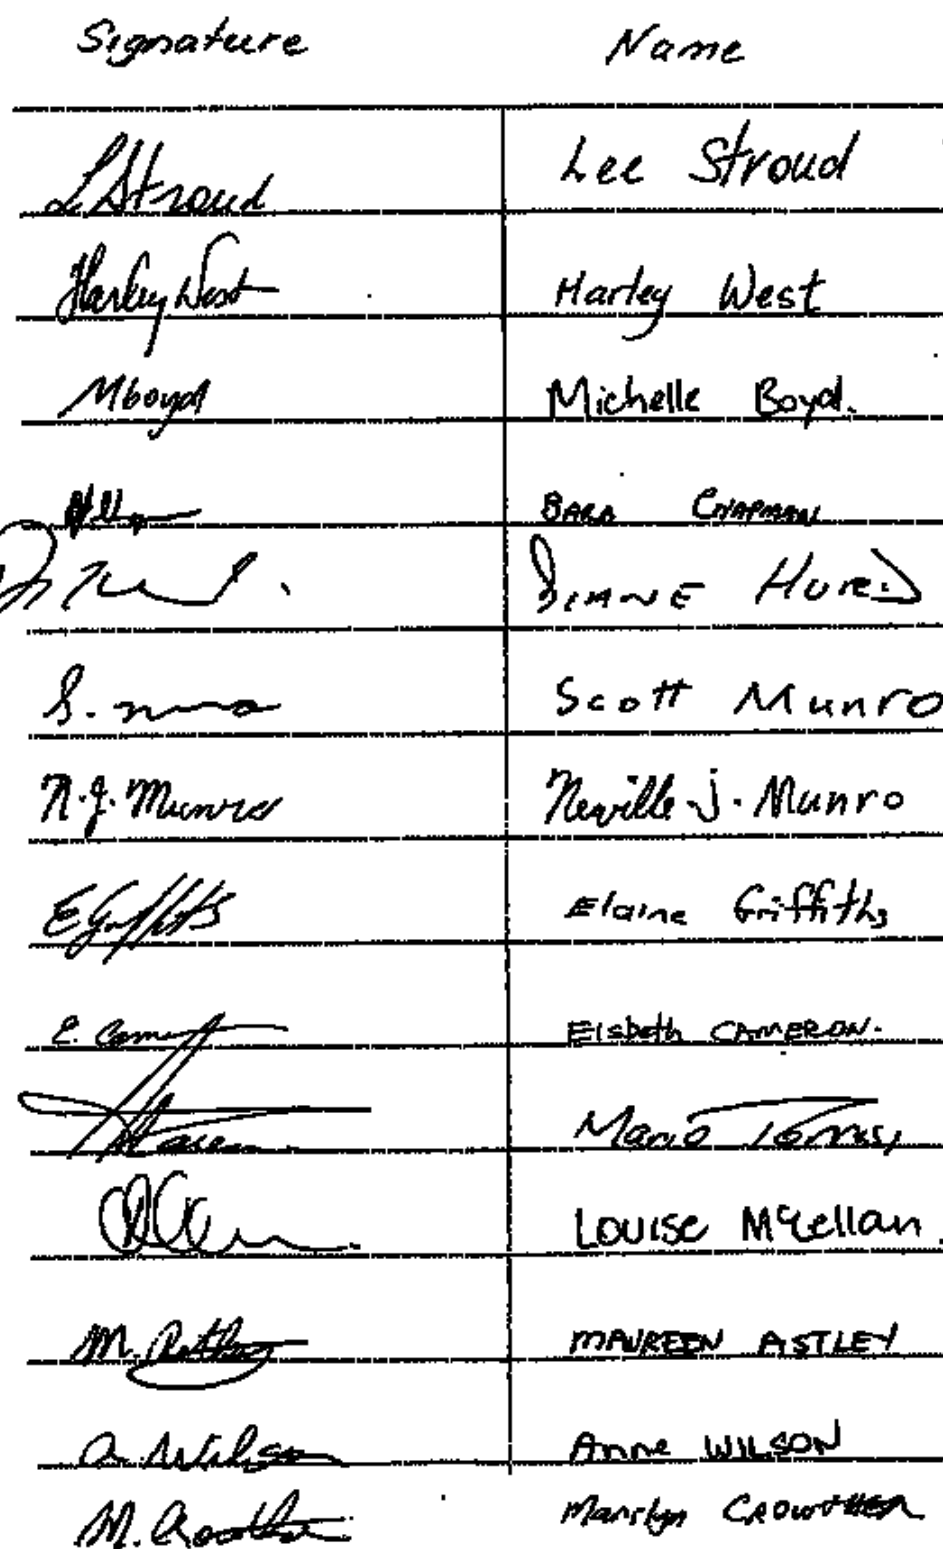 Signature Name
L Stroud Lee Stroud
Harley West Harley West
Mboyd Michelle Boyd.
Chapman
Diane Hurd
S. Munro Scott Munro
N.J. Munro Neville J. Munro
E Griffiths Elaine Griffiths
E. Elsbeth CAMERON.
Mario
Louise McLellan.
M. MAUREEN ASTLEY
A. Wilson Anne WILSON
M. Marilyn CROWTHER